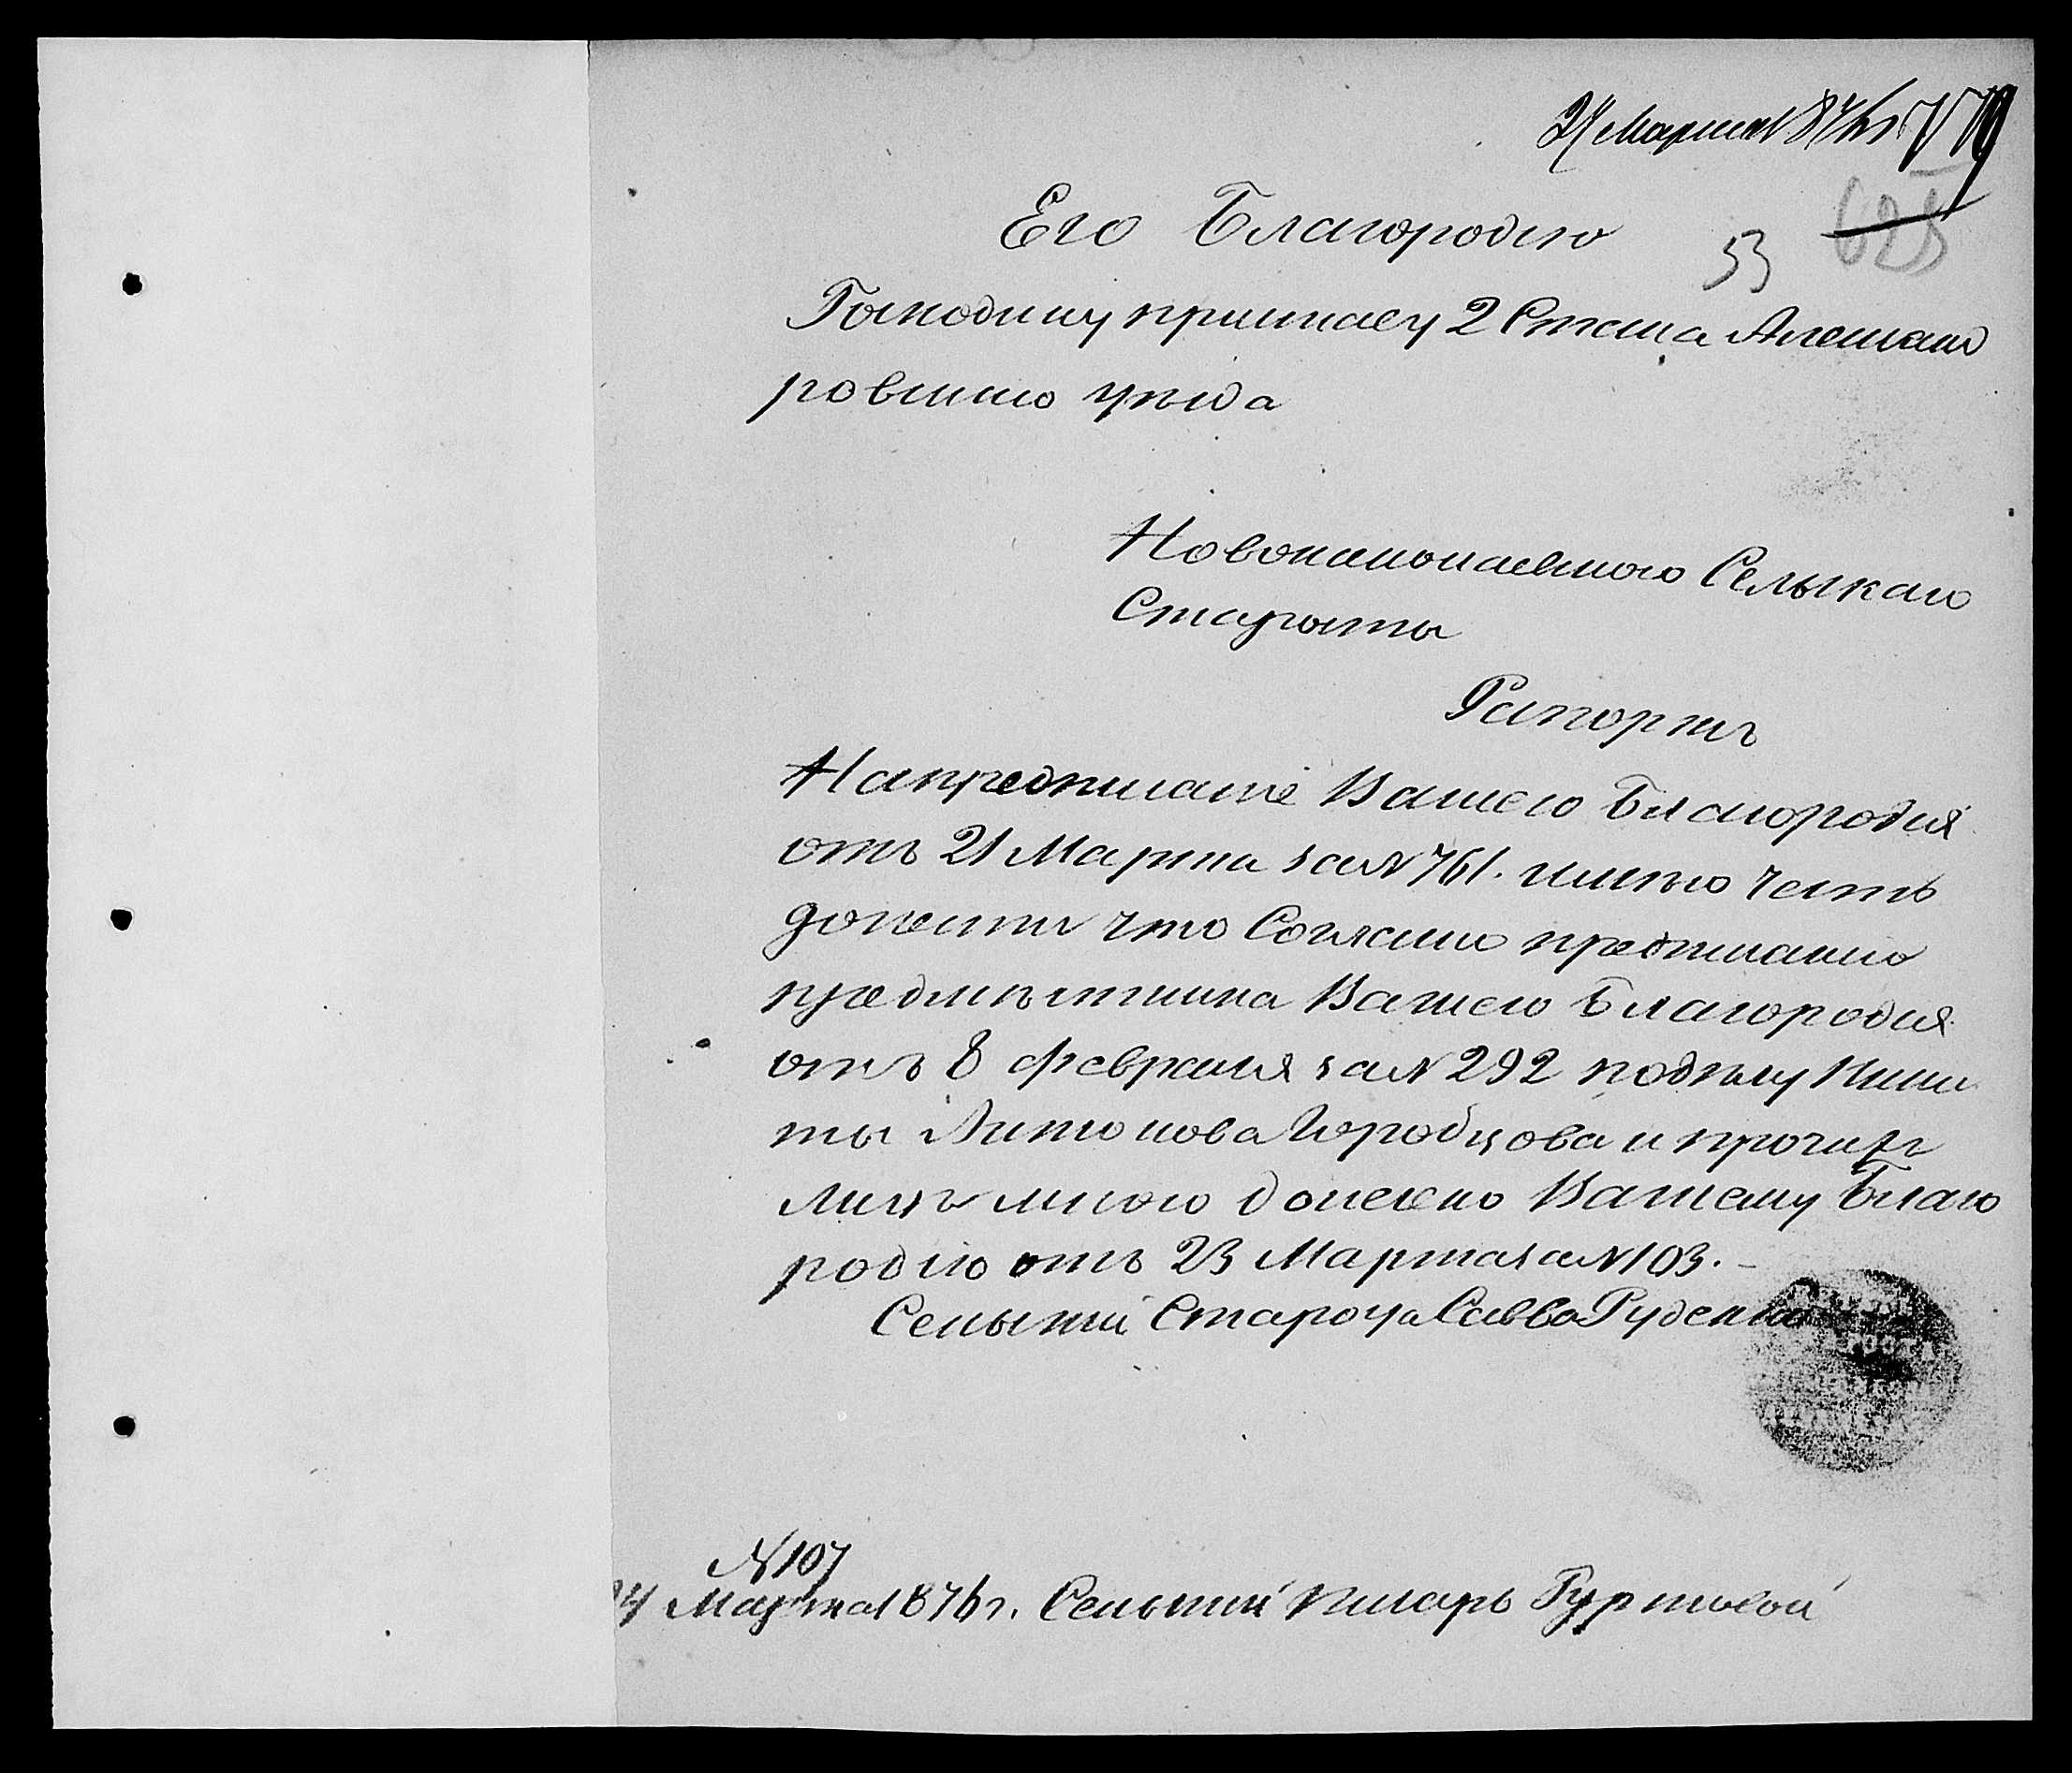 Марта 1876 г
Его Благородію
53 623
Господину приставу 2 Стана Александ
ровского уѣзда
Новониколаевского Сельскаго
Старосты
Рапортъ
На предписаніе Вашего Благородія
отъ 21 Марта за № 761. имѣю честь
донести что Согласно предписанію
предмѣстника Вашего Благородія
отъ 8 февраля за № 292 подѣлу Ники
ты Антонова Городцова и прочихъ
лицъ мною донесено Вашему Благо
родію отъ 23 Марта за № 103.
Сельскій Староста Савва Руденко
№ 107
24 Марта 1876 г. Сельскій Писарь Гуртовой